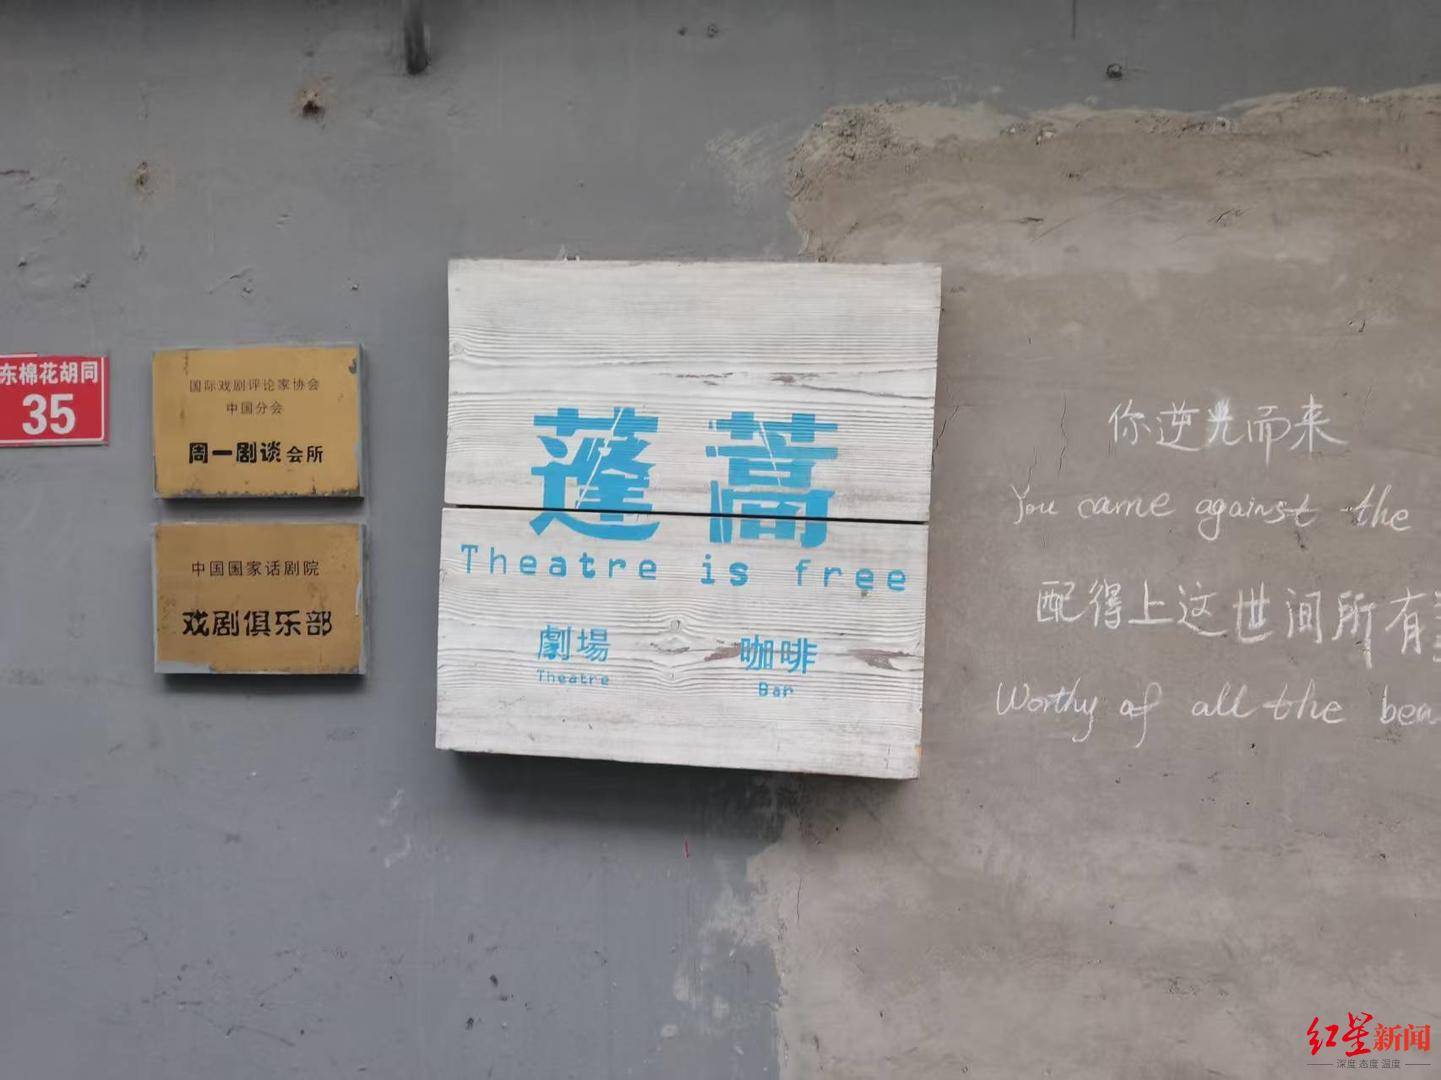 东棉花胡同
35
国际戏剧评论家协会
中国分会
周一剧谈会所
中国国家话剧院
戏剧俱乐部
蓬蒿
Theatre is free
劇場
Theatre
咖啡
Bar
你逆光而来
You came against the
配得上这世间所有
Worthy of all the
红星新闻
深度 态度 温度